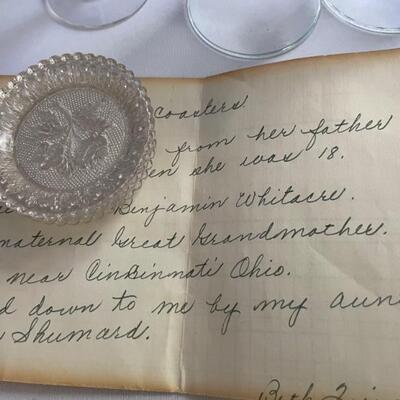 coasters
from her father
en she was 18.
Benjamin Whitacre.
maternal Great Grandmother.
near Cincinnati Ohio.
d down to me by my aun
Shumard.
Beth